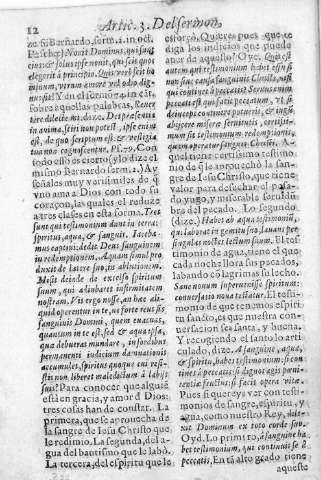 12 Artic. 3. Del sermon,
ze S. Bernardo, serm. 1. in oct.
Pasche,) Nouit Dominus, qui sunt
eius, & solus ipse nouit, qui sis quos
elegerit à principio. Quis verò scit ho
minum, virum amore vel odio dig-
nus sit? Y en el sermon 2.
sobre aquellas palabras, Reuer
tere dilecte mi, dize.
in anima, sciri non potest, ipse enim
est, de quo scriptum est: & vestigia
tua non cognoscentur. Ps. 79. Con
todo esso es cierto (y lo dize el
mismo Bernardo serm. 2.) Ay
señales muy verisimiles de q̃
vno ama à Dios con todo su
coraçon, las quales el reduze
a tres clases en esta forma. Tres
sunt qui testimonium dant in terra:
spiritus, aqua, & sanguis.
captiui: dedit Deus sanguinem
in redemptionem. Aquam simul de
duxit de latere suo, in ablutionem.
Misit deinde de excelso spiritum
suum, qui adiuuaret infirmitatem
nostram. Vis ergo nosse, an hæc ali-
quid operentur in te, ne forte reus sis
sanguinis Domini, quem euacuas,
quantum in te est, sed & aquæ ipsa,
qua debueras mundare, in sordibus
permanenti iudicium damnationis
accumules, spiritus quoque cui resi-
stis non liberet maledictum à labijs
suis? Para conocer que alguiẽ
está en gracia, y amor d̃ Dios:
tres cosas han de constar. La
primera, que se aprouecha de
la sangre de Iesu Christo que
le redimio. La segunda, del a-
gua del bautismo que le labò.
La tercera, del espiritu que le
esforçò. Quieres pues que te
diga los indicios que puede
auer de aquello? Oye.
autem qui testimonium habet
sanguinis Christi, nisi
qui continet à peccatis? Seruus enim
peccati est qui facit peccatum, vt, si
deinceps continere poterit, & durius
abijcere miseræ seruitutis, certissi-
mum sit testimonium redemptionis,
quem operatur sanguis Christi. A-
quel tiene certissimo testimo-
nio de q̃ se aprouechò la san-
gre de Iesu Christo, que tiene
valor para desechar el pesa-
do yugo, y miserable seruidũ-
bre del pecado. Lo segundo,
(dize) Habet ab aqua testimoniũ,
qui laborat in gemitu suo, lauans per
singulas noctes lectum suum. El tes-
timonio de agua, tiene el que
cada noche llora sus pecados,
labando cõ lagrimas su lecho.
Sane nouum superuenisse spiritum:
conuersatio noua testatur. El testi-
monio de que tenemos espiri-
tu santo, es que nuestra con-
uersacion sea santa, y buena.
Y recogiendo el santo lo arti
culado, dize. A sanguine, aqua,
& spiritu, habet testimonium: si con
tines à peccatis: si dignos agis pœni-
tentiæ fructus: si facis opera vitæ.
Pues si quereys ver con testi-
monios de sangre, espiritu, y
agua, como nuestro Rey, dile-
xit Dominum ex toto corde suo.
Oyd. Lo primero, à sanguine ha-
bet testimonium, qui continuit se à
peccatis, En tã alto grado tiene
aqueste